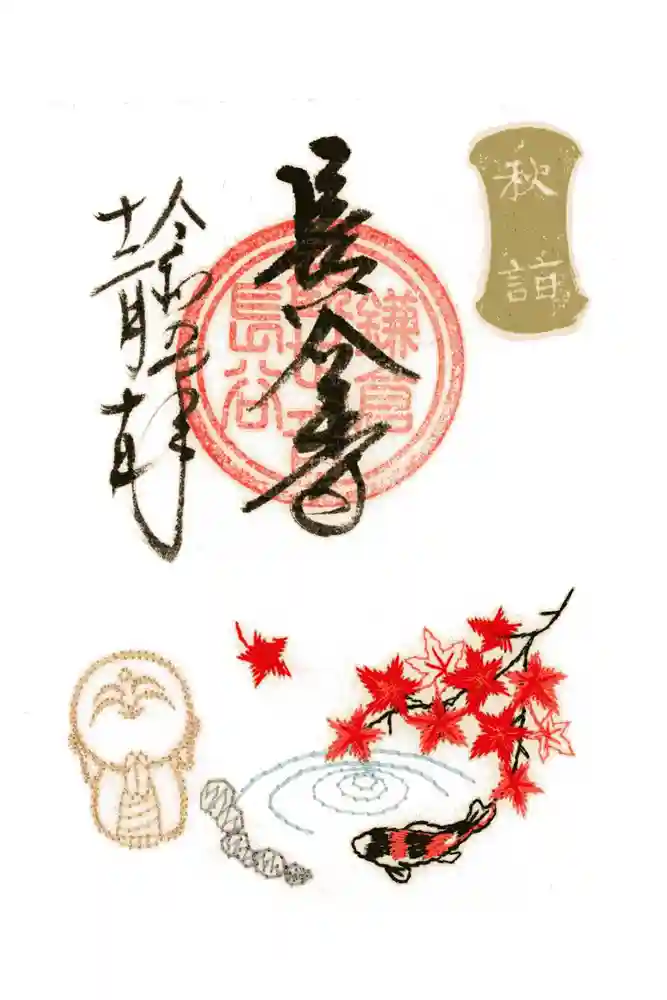 秋詣
長谷寺
鎌倉
長谷
令和五年
十二月